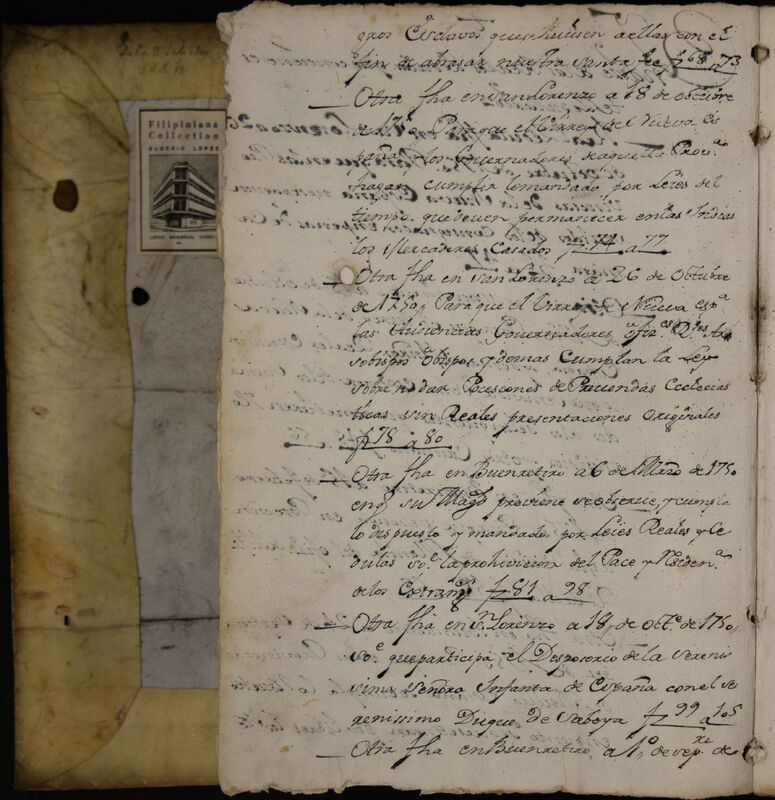 Filipiniana
Collection
EUGENIO LOPEZ
LOPEZ MEMORIAL MUSEUM
gros Esclavos que se huiesen a ellas con el
fin de abrasar nuestra santa fee f 68 a 73
Otra fha en san Lorenzo a 18 de octubre
de 1750 Para que el Virrey del Nueva Es
paña, y los Governadores de aquella Prov.
hagan cumplir lo mandado por Leies del
tiempo que deven permanecer en las Indias
los Mercaderes Casados f 74 a 77
Otra fha en san Lorenzo a 26 de Octubre
de 1750, Para que el Virrey de Nueva espª
las Audiencias Governadores ofizes Rles Ar
sobispo obispos, y demas cumplan la Ley
sobre no dar Pocesiones de Prevendas Eclecias
ticas sin Reales presentaciones originales
f 78 a 80
Otra fha en Buenretiro a 6 de Marzo de 1750
en q su Magd previene se observe, y cumpla
lo dispuesto y mandado por Leies Reales y Ce
dulas soe la prohivicion del Pace y Residena
de los Extrangs f 81 a 98
Otra fha en Sn Lorenzo a 18, de octe de 1750,
soe que participa el Desposorio de la sereni
sima señora Infanta de España con el se
renissimo Duque de Saboya f 99 a 105
Otra fha en Buenretiro a 1º de sepre de